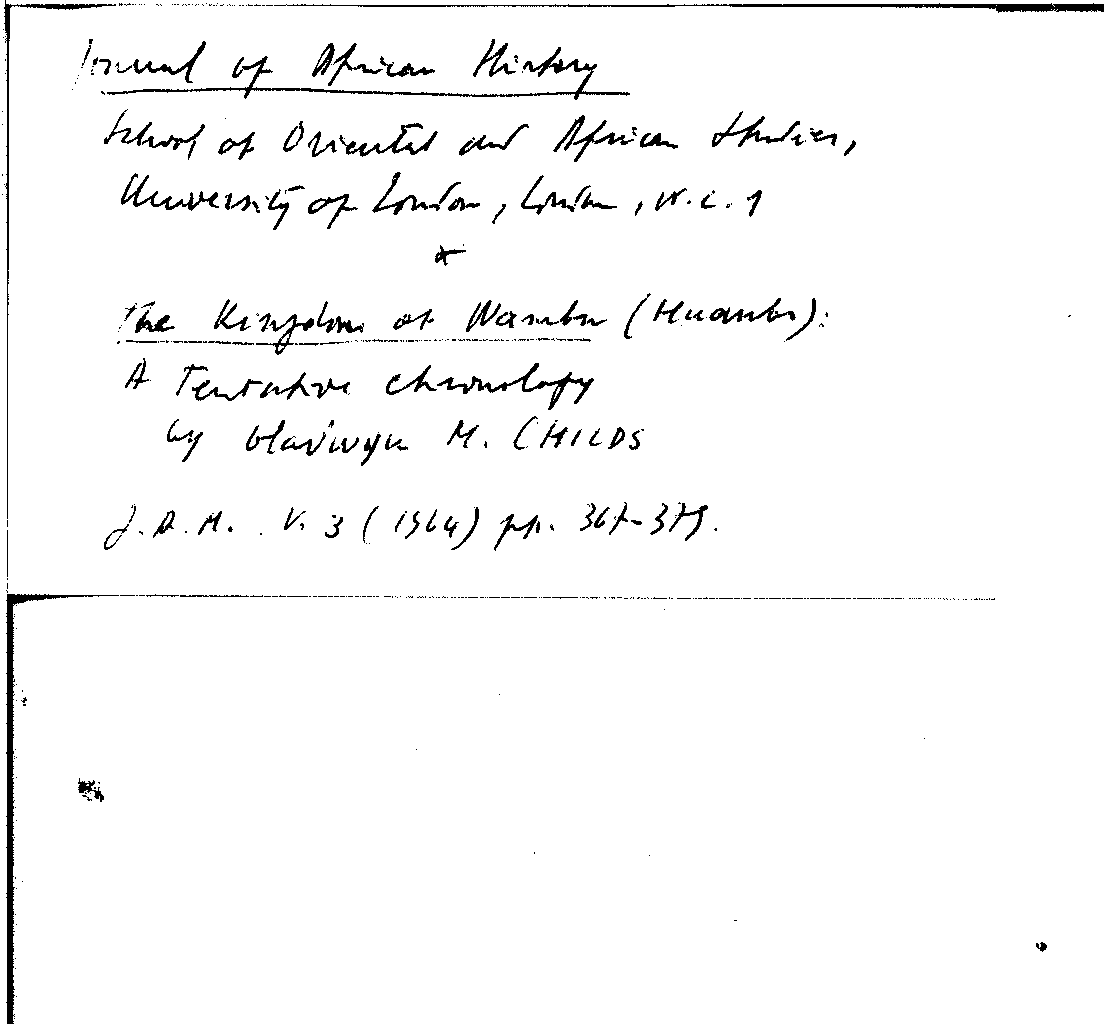 Journal of African History
School of Oriental and African Studies,
University of London, London, W.C.1
*
The Kingdom of Wambu (Huambo):
A Tentative Chronology
by Gladwyn M. CHILDS
J.A.H. V. 3 (1964) pp. 367-379.